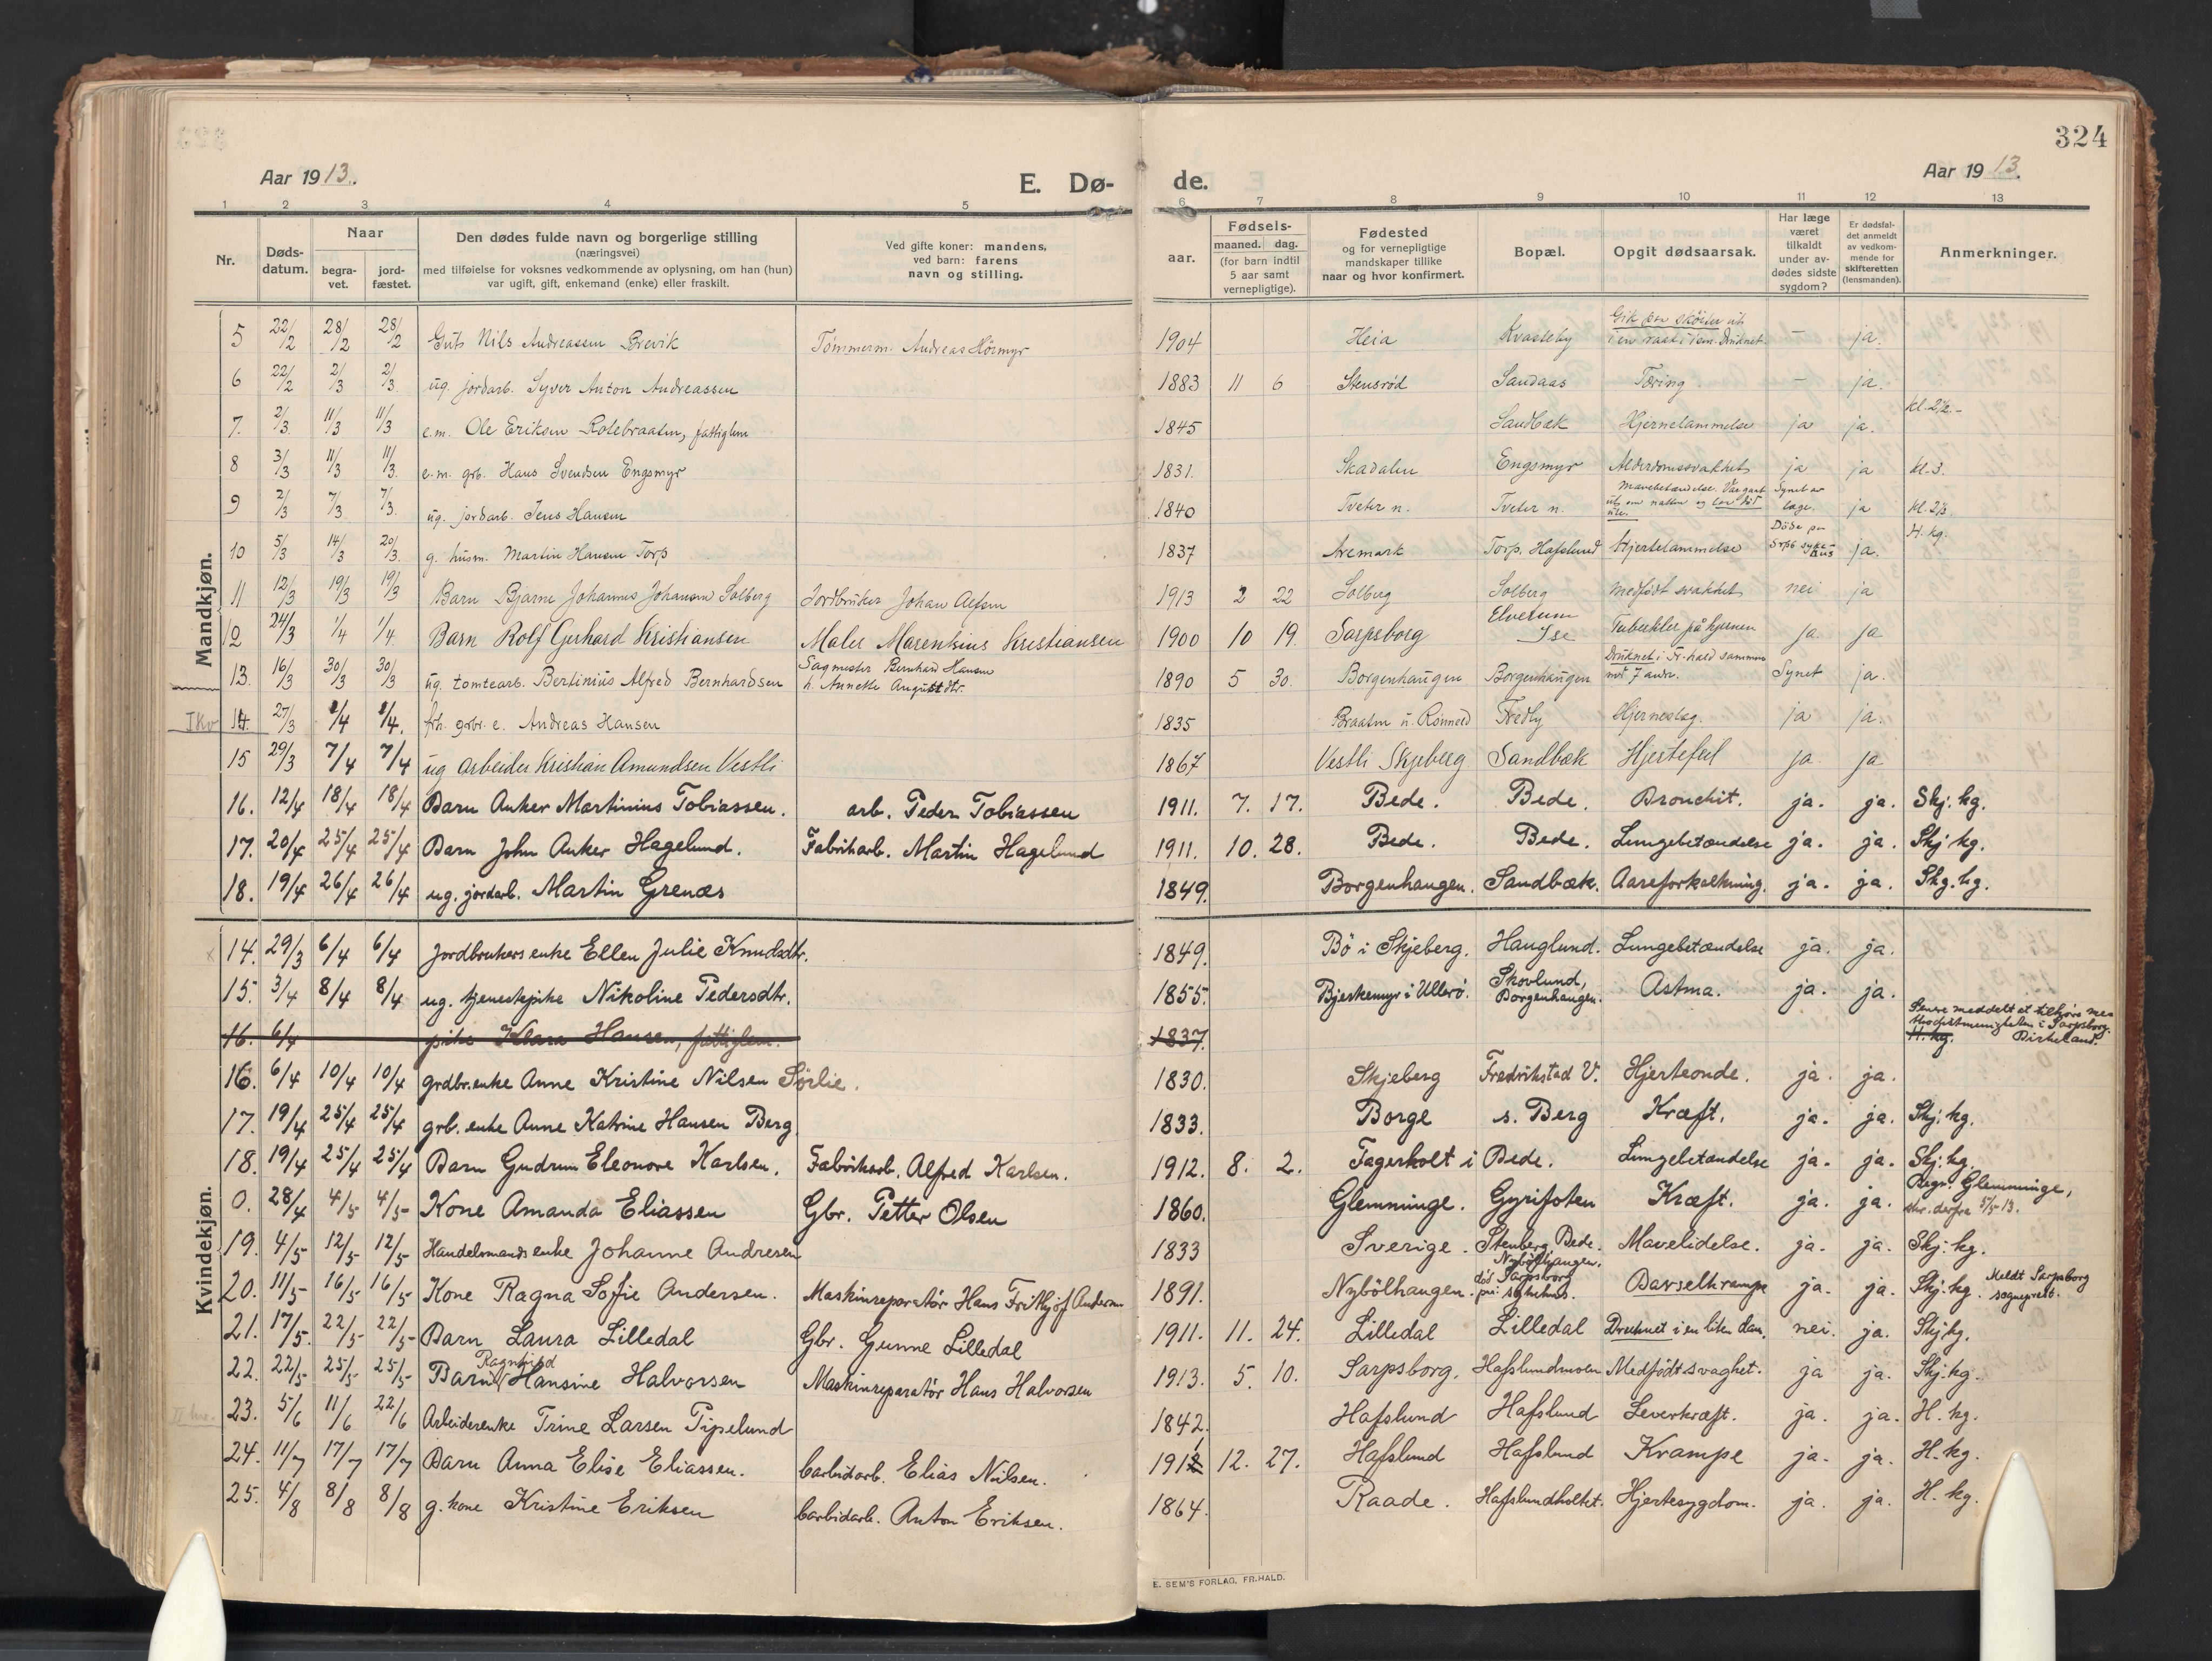 324
Aar 1913.
E. Dø-
de.
Aar 1913.
1 2 3 4 5 6 7 8 9 10 11 12 13
Nr.
Døds-
datum.
Naar
begra-
vet.
jord-
fæstet.
Den dødes fulde navn og borgerlige stilling
(næringsvei)
med tilføielse for voksnes vedkommende av oplysning, om han (hun)
var ugift, gift, enkemand (enke) eller fraskilt.
Ved gifte koner: mandens,
ved barn: farens
navn og stilling.
Fødsels-
aar.
maaned. dag.
(for barn indtil
5 aar samt
vernepligtige).
Fødested
og for vernepligtige
mandskaper tillike
naar og hvor konfirmert.
Bopæl.
Opgit dødsaarsak.
Har læge
været
tilkaldt
under av-
dødes sidste
sygdom?
Er dødsfal-
det anmeldt
av vedkom-
mende for
skifteretten
(lensmanden).
Anmerkninger.
Mandkjøn.
5 22/2 28/2 28/2 Guts Nils Andreassen Brevik Tømmerm. Andreas Hörmyr 1904 Heia Kvasteby i en raak i isen. Druknet. — ja.
6 22/2 2/3 2/3 ug. jordarb. Syver Anton Andreassen 1883 11 6 Stensrød Sandaas Tæring — ja.
7. 2/3 11/3 11/3 e.m. Ole Eriksen Rolebraaten, fattiglem 1845 Sandbæk Hjernelammelse ja ja. kl. 2½.-
8 3/3 11/3 11/3 e.m. grb. Hans Svendsen Engsmyr 1831. Skadalen Engsmyr Alderdomssvakhet ja ja kl. 3.
9 2/3 7/3 7/3 ug. jordarb. Jens Hansen 1840 Tveter n. Tveter n. Mavebetændelse. Var gaat ut om natten og Synet av læge. ja
10 5/3 14/3 20/3 g. husm. Martin Hansen Torp 1837 Aremark Torp. Hafslund Hjertelammelse ja. H. kg.
11 12/3 19/3 19/3 Barn Bjarne Johannes Johansen Solberg Jordbruker Johan Alfsen 1913 2 22 Solberg Solberg Medfødt svakhet nei ja
12 24/3 1/4 1/4 Barn Rolf Gerhard Kristiansen Maler Marenkius Kristiansen 1900 10 19 Sarpsborg Elvetum Ise Tuberkler på hjernen ja ja
13. 16/3 30/3 30/3 ug. tomtearb. Bertinius Alfred Bernhardsen Sagmester Bernhard Hansen h. Annette Augustdtr. 1890 5 30. Borgenhaugen Borgenhaugen Druknet i Fr.hald sammen med 7 andre. Synet ja.
I Kv 14. 27/3 2/4 2/4. frh. grbr. e. Andreas Hansen 1835 Braaten u. Rønneld Fredly Hjerneslag. ja ja.
15 29/3 7/4 7/4 ug arbeider Kristian Amundsen Vestli 1867 Vestli Skjeberg Sandbæk Hjertefeil ja ja
16. 12/4 18/4 18/4 Barn Anker Martinius Tobiassen. arb. Peder Tobiassen 1911. 7. 17. Bede. Bede. Bronchit. ja. ja. Skj. kg.
17. 20/4 25/4 25/4 Barn John Anker Hagelund. Fabrikarb. Martin Hagelund 1911. 10. 28. Bede. Bede. Lungebetændelse ja. ja. Skj kg.
18. 19/4 26/4 26/4 ug. jordarb. Martin Grenæs 1849. Borgenhaugen. Sandbæk. Aareforkalkning. ja. ja. Skg. kg.
Kvindekjøn.
14. 29/3 6/4 6/4 Jordbrukers enke Ellen Julie Knudsdtr. 1849. Bö i Skjeberg. Hauglund. Lungebetændelse ja. ja.
15. 3/4 8/4 8/4 ug. tjenestepike Nikoline Pedersdtr. 1855. Bjerkemyr i Ullerö. Skovlund, Borgenhaugen. Astma. ja. ja.
16. 6/4 pike Klara Hansen, fattiglem. 1837. H. kg. Senere meddelt at tilhöre metodistmenigheten i Sarpsborg. Birkeland.
16. 6/4 10/4 10/4 grdbr.enke Anne Kristine Nilsen Sørlie. 1830. Skjeberg Fredrikstad V. Hjerteonde. ja. ja.
17. 19/4 25/4 25/4 grb. enke Anne Katrine Hansen Berg 1833. Borge s. Berg Kræft. ja. ja. Skj. kg.
18. 19/4 25/4 25/4 Barn Gudrun Eleonore Karlsen. Fabrikarb. Alfred Karlsen. 1912. 8. 2. Fagerholt i Bede. Lungebetændelse ja. ja. Skj. kg.
0. 28/4 4/5 4/5 Kone Amanda Eliassen Gbr. Petter Olsen 1860. Glemminge. Gyrifoten Kræft. ja. ja. Begr. Glemminge, skr. derfra 5/5-13.
19. 4/5 12/5 12/5 Handelsmands enke Johanne Andresen 1833 Sverige. Stenberg, Bede. Mavelidelse. ja. ja. Skj. kg.
20. 11/5 16/5 16/5 Kone Ragna Sofie Andersen. Maskinreparatør Hans Frithjof Andersen 1891. Nybölhaugen. Nybölhaugen, död Sarpsborg sykehus. Barselkrampe ja. ja. Skj. kg. Meldt Sarpsborg sogneprest.
21. 17/5. 22/5 22/5 Barn Laura Lilledal Gbr. Gunne Lilledal 1911. 11. 24. Lilledal Lilledal Druknet i en liten dam. nei. ja. Skj kg.
22. 22/5 25/5 25/5 Barn Ragnhild Hansine Halvorsen Maskinreparatør Hans Halvorsen 1913. 5. 10. Sarpsborg. Hafslundmoen Medfödt svaghet. ja ja. Skj. kg.
23. 5/6 11/6 22/6 Arbeiderenke Trine Larsen Pipelund 1842. Hafslund Hafslund Leverkræft. ja. ja. H. kg.
24. 11/7 17/7 17/7 Barn Anna Elise Eliassen. Carbidarb. Elias Nilsen. 1911 12. 27. Hafslund Hafslund Krampe ja. ja. H. kg.
25. 4/8 8/8 8/8 g. kone Kristine Eriksen Carbidarb. Anton Eriksen. 1864. Raade. Hafslundholtet. Hjertesygdom. ja. ja. H. kg.
E. SEM'S FORLAG, FR.HALD.